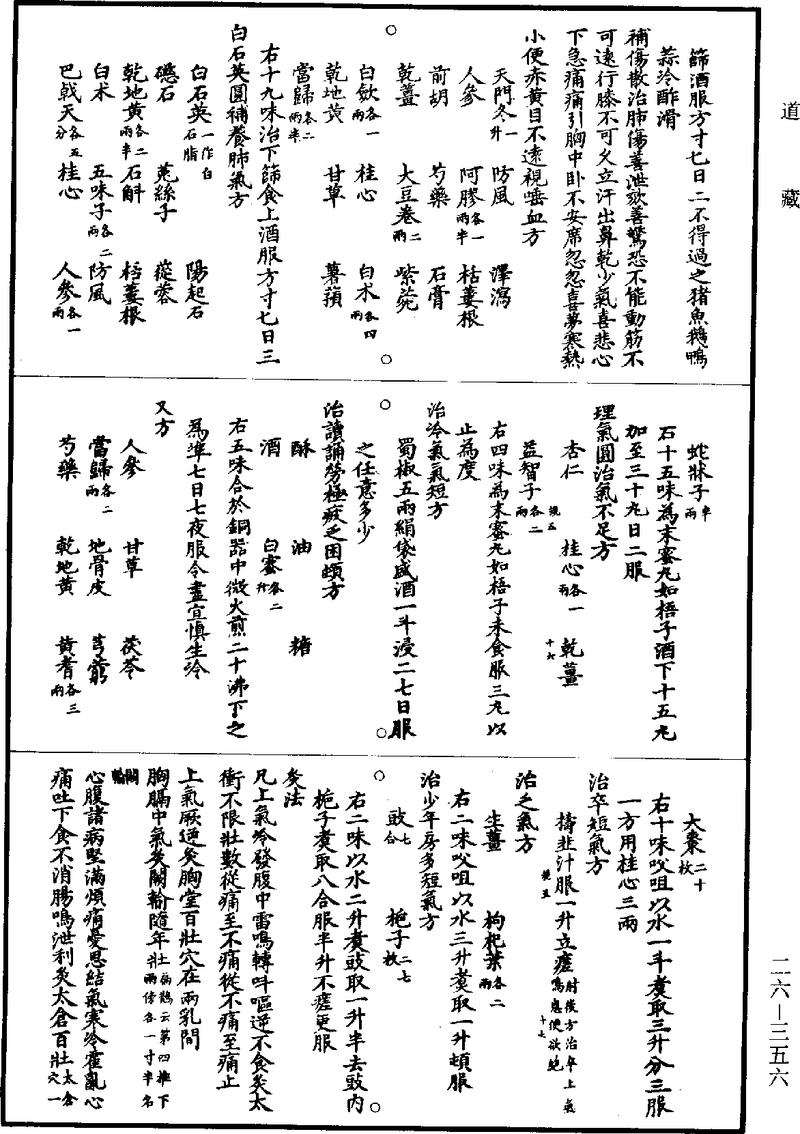 道藏
篩酒服方寸七日二不得過之猪魚鵝鴨
蒜冷酢滑
補傷散治肺傷善泄欬善驚恐不能動筋不
可遠行膝不可久立汗出鼻乾少氣喜悲心
下急痛痛引胸中卧不安席忽忽喜夢寒熱
小便赤黄目不遠視唾血方
天門冬一升 防風 澤瀉
人參 阿膠各一兩半 栝蔞根
前胡 芍藥 石膏
乾薑 大豆卷二兩 紫菀
白斂各一兩 桂心 白术各四兩
乾地黄 甘草 薯蕷
當歸各二兩半
右十九味治下篩食上酒服方寸七日三
白石英圓補養肺氣方
白石英一作白石脂 陽起石
磁石 菟絲子 蓯蓉
乾地黄各二兩半 石斛 栝蔞根
白术 五味子各二兩 防風
巴戟天各五分 桂心 人參各一兩
蛇牀子半兩
右十五味為末蜜丸如梧子酒下十五丸
加至三十丸日二服
理氣圓治氣不足方
杏仁 桂心各一兩 乾薑
益智子各二兩
競五
十六
右四味為末蜜丸如梧子未食服三丸以
止為度
治冷氣氣短方
蜀椒五兩絹袋盛酒一斗浸二七日服
之任意多少
治讀誦勞極疲乏困頓方
酥 油 糖
酒 白蜜各二升
右五味合於銅器中微火煎二十沸下之
為準七日七夜服令盡宜慎生冷
又方
人參 甘草 茯苓
當歸各二兩 地骨皮 芎藭
芍藥 乾地黄 黄耆各三兩
大棗二十枚
右十味㕮咀以水一斗煮取三升分三服
一方用桂心三兩
治卒短氣方
擣韭汁服一升立瘥肘後方治卒上氣鳴息便欲絶
競五
十七
治乏氣方
生薑 枸杞葉各二兩
右二味㕮咀以水三升煮取一升頓服
治少年房多短氣方
豉七合 梔子二七枚
右二味以水二升煮豉取一升半去豉内
梔子煮取八合服半升不瘥更服
灸法
凡上氣冷發腹中雷鳴轉呌嘔逆不食灸太
衝不限壯數從痛至不痛從不痛至痛止
上氣厥逆灸胸堂百壯穴在兩乳間
胸膈中氣灸闕輸隨年壯扁鵲云第四椎下兩傍各一寸半名闕輸
心腹諸病堅滿煩痛憂思結氣寒冷霍亂心
痛吐下食不消腸鳴泄利灸太倉百壯太倉穴一
二六—三五六